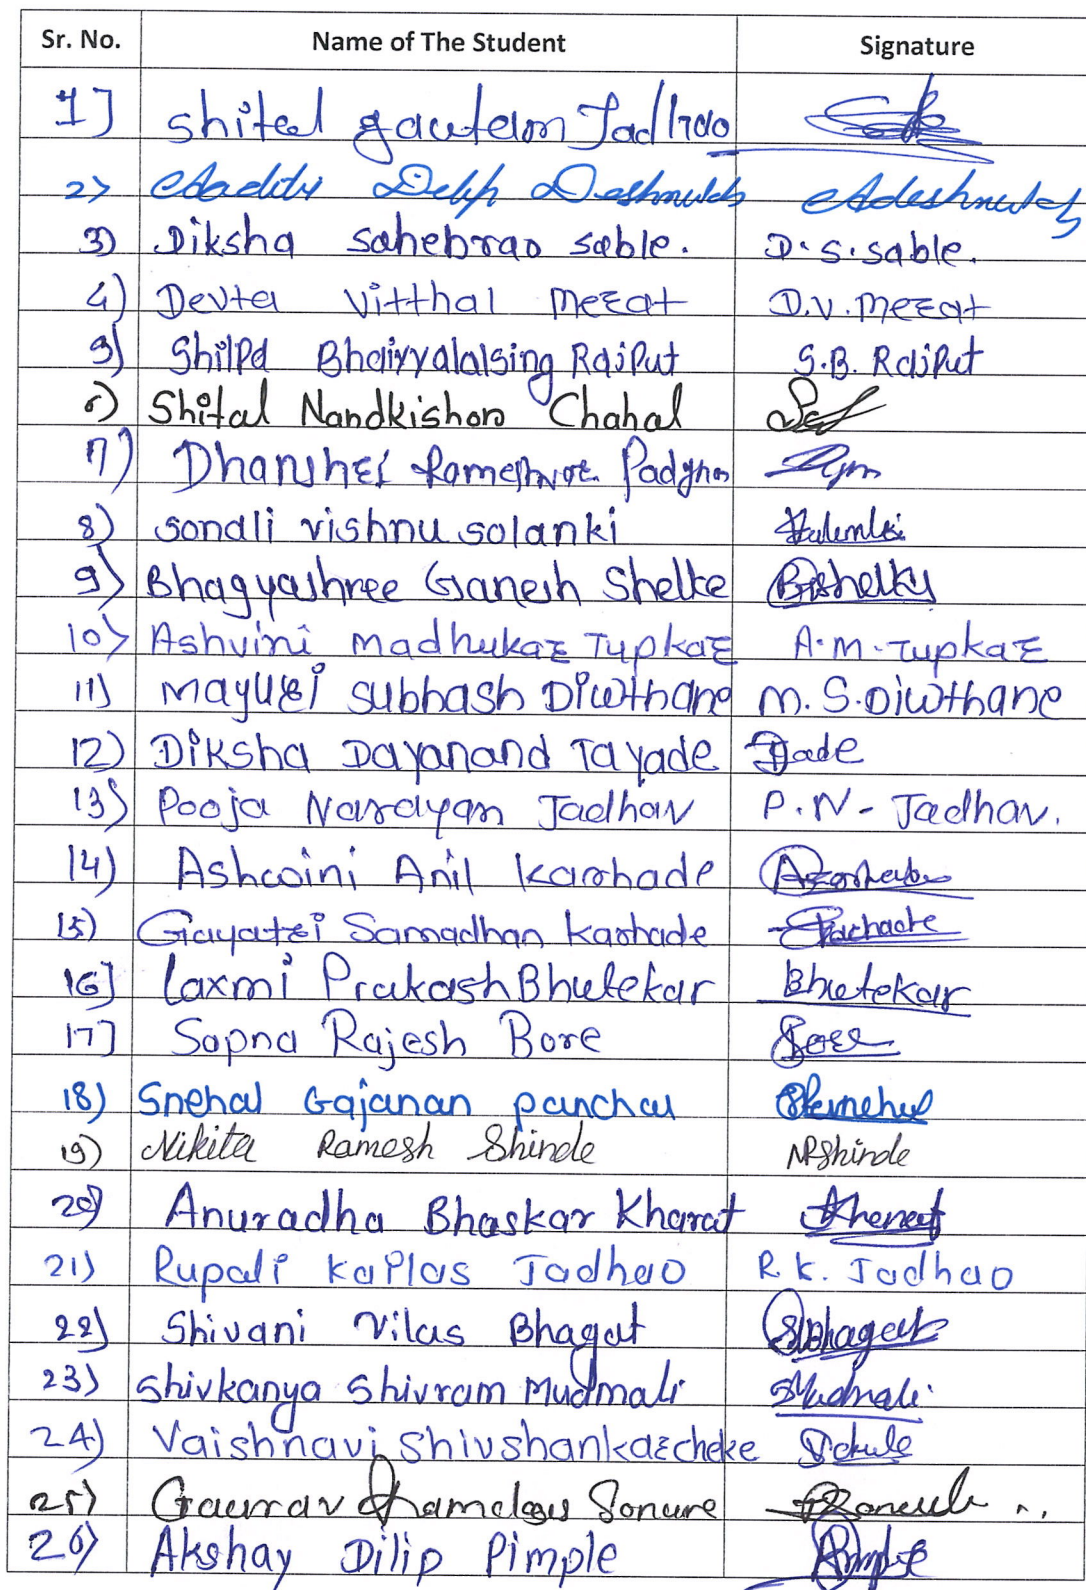 Sr. No. Name of The Student Signature
1] Shital gautam Jadhao
2) Aaditi Dilip Deshmukh Adeshmukh
3) Diksha sahebrao sable. D.S.sable.
4) Devta Vitthal Merat D.V.Merat
5) Shilpa Bhaiyyalalsing Rajput S.B. Rajput
6) Shital Nandkishor Chahal
7) Dhanshri Rameshwar Padghan
8) sonali vishnu solanki
9) Bhagyashree Ganesh Shelke Bshelke
10) Ashvini Madhukar Tupkar A.M.Tupkar
11) Mayuri Subhash Diwthane M.S.Diwthane
12) Diksha Dayanand Tayade
13) Pooja Narayan Jadhav P.N-Jadhav.
14) Ashwini Anil Karhade
15) Gayatri Samadhan Karhade
16] Laxmi Prakash Bhutekar Bhutekar
17] Sapna Rajesh Bore Bore
18) Snehal Gajanan panchal
19) Nikita Ramesh Shinde NRShinde
20) Anuradha Bhaskar Kharat Kharat
21) Rupali kailas Jadhao R.K. Jadhao
22) Shivani Vilas Bhagat SVbhagat
23) Shivkanya Shivram Mudmali Mudmali.
24) Vaishnavi Shivshankar cheke
25) Gaurav Sonune
26) Akshay Dilip Pimple Pimple